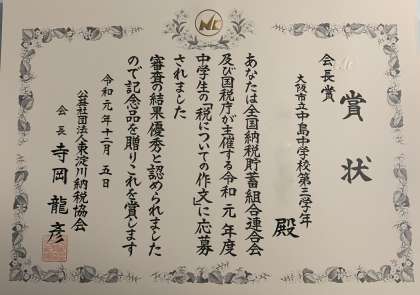 賞状
会長賞
大阪市立中島中学校第三学年
殿
あなたは全国納税貯蓄組合連合会
及び国税庁が主催する令和元年度
中学生の「税についての作文」に応募
されました
審査の結果優秀と認められました
ので記念品を贈りこれを賞します
令和元年十二月五日
公益社団法人東淀川納税協会
会長 寺岡龍彦